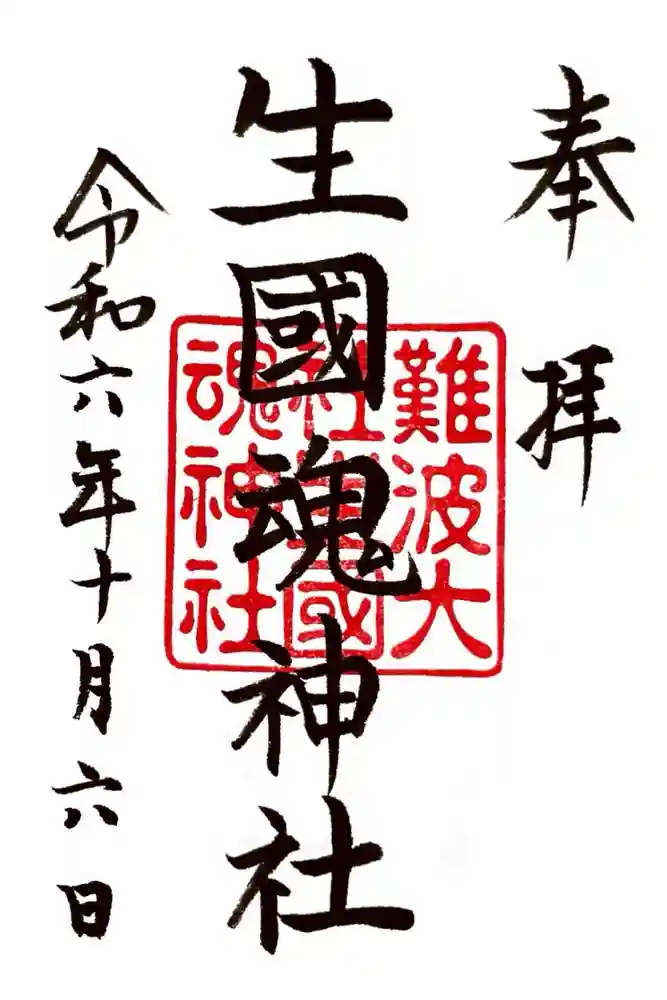 奉拝
生國魂神社
難波大
社生國
魂神社
令和六年十月六日